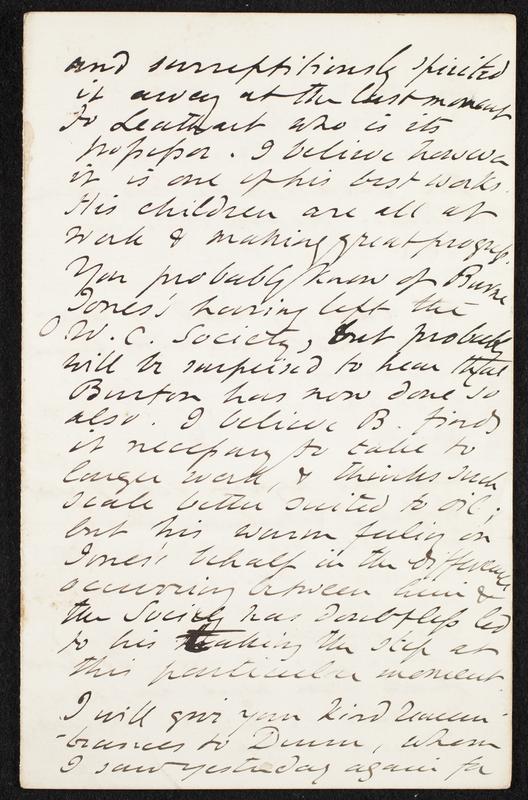 and surreptitiously spirited
it away at the last moment
to Leathart who is its
possessor. I believe however
it is one of his best works.
His children are all at
work & making great progress.
You probably know of Burne
Jones's having left the
O W. C. Society, but probably
will be surprised to hear that
Burton has now done so
also. I believe B. finds
it necessary to take to
larger work, & thinks such
scale better suited to oil;
but his warm feeling on
Jones's behalf in the differences
occurring between him &
the Society has doubtless led
to his taking the step at
this particular moment.
I will give your kind remem-
-brances to Dunn, whom
I saw yesterday again for